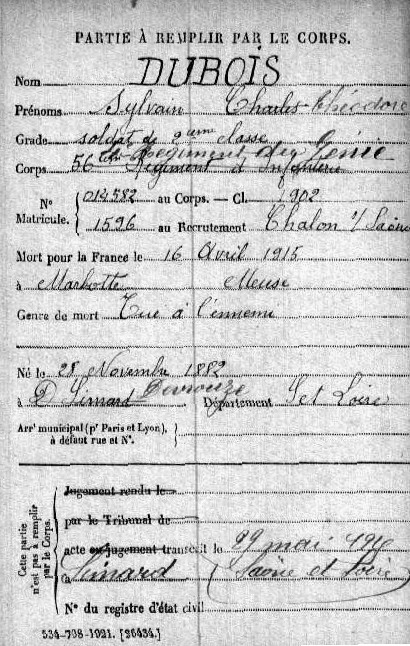 PARTIE À REMPLIR PAR LE CORPS.
Nom DUBOIS
Prénoms Sylvain Charles-Théodore
Grade soldat de 2ème classe
Régiment du Génie
Corps 56ème Régiment d'Infanterie
N° Matricule. { 014582 au Corps. — Cl. 1902
1596 au Recrutement Chalon s/ Saône
Mort pour la France le 16 Avril 1915
à Marbotte Meuse
Genre de mort Tué à l'ennemi
Né le 28 Novembre 1882
Devrouze
à Simard Département S et Loire
Arrt municipal (pr Paris et Lyon), à défaut rue et N°. {
Cette partie n'est pas à remplir par le Corps.
Jugement rendu le
par le Tribunal de
acte ou jugement transcrit le 29 mai 1916
à Simard (Saône et Loire)
N° du registre d'état civil
534-738-1921. [26434.]